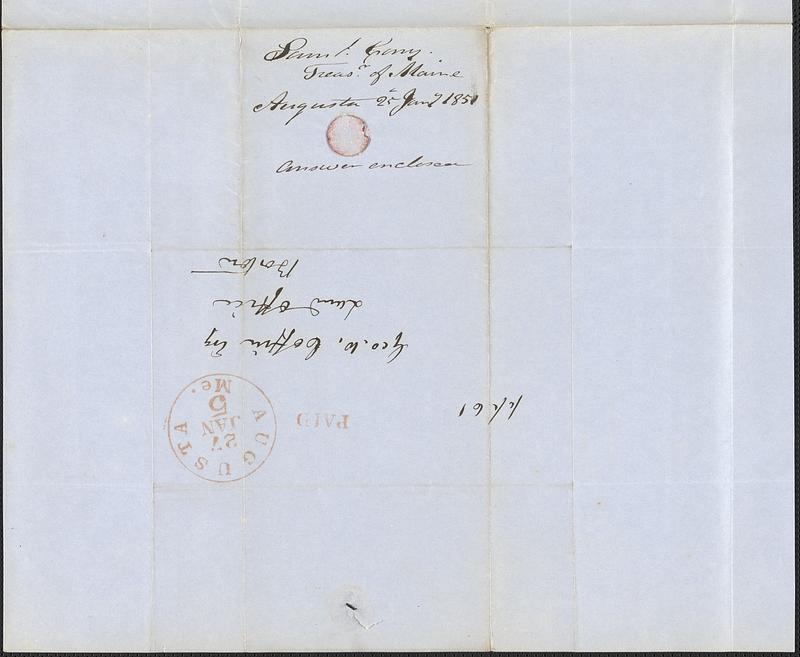 Saml. Cony.
Treasr. of Maine
Augusta 25 Jany 1851
Answer enclosed
Geo. W. Coffin Esq
Land Office
Boston
PAID
AUGUSTA Me.
27
JAN
5